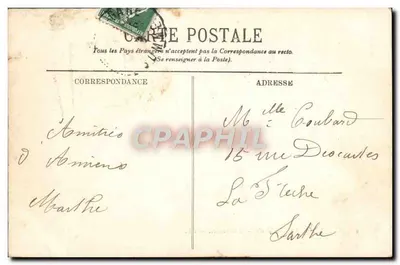 CARTE POSTALE
Tous les Pays étrangers n'acceptent pas la Correspondance au recto.
(Se renseigner à la Poste).
CORRESPONDANCE
ADRESSE
Amitiés
d'Amiens
Marthe
Mlle Coubard
15 rue Descartes
La Flèche
Sarthe
CPARAMA